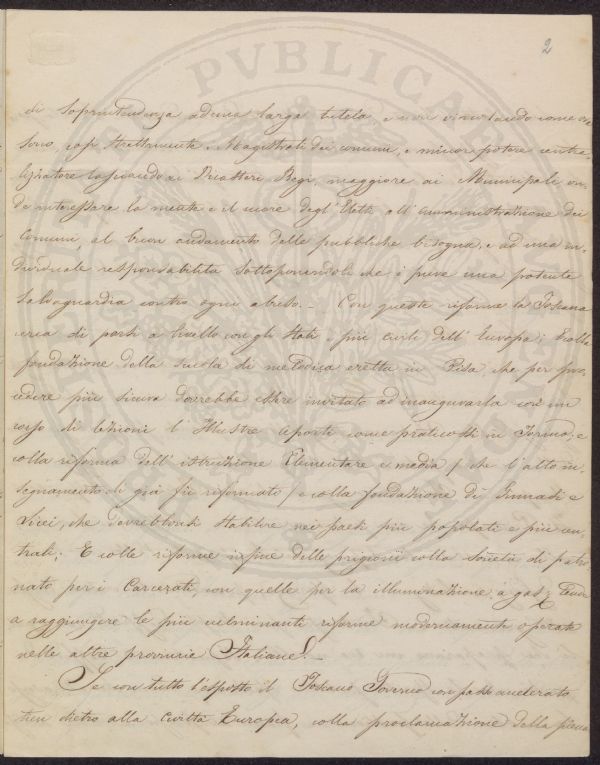 2
di Soprintendenza ad una larga tutela e non vincolando come or
sono, così strettamente i Magistrati dei comuni, e minor potere centra-
lizzatore lasciando ai Prefetti Regi, maggiore ai Municipali on-
de interessare la mente e il cuore degl'Eletti all'amministrazione dei
Comuni, al buon andamento delle pubbliche bisogna, e ad una in-
dividuale responsabilità sottoponendoli che è pure una potente
salvaguardia contro ogni abuso. — Con queste riforme la Toscana
cerca di porsi a livello con gli Stati i più civili dell'Europa; E colla
fondazione della scuola di metodica eretta in Pisa, che per pro-
cedere più sicura dovrebbe essere invitato ad inaugurarla con un
corso di lezioni l'Illustre Aporti come praticossi in Torino, e
colla riforma dell'istruzione Elementare e media (che l'alto in-
segnamento di già fù riformato) e colla fondazione di Ginnasi e
Licei, che dovrebbonsi stabilire nei paesi più popolati e più cen-
trali; E colle riforme infine delle prigioni colla Società di patro-
nato per i Carcerati, con quelle per la illuminazione a gas, tende
a raggiungere le più culminanti riforme modernamente operate
nelle altre provincie Italiane! —
Se con tutto l'esposto il Toscano Governo con passo accelerato
tien dietro alla civiltà Europea, colla proclamazione della piena